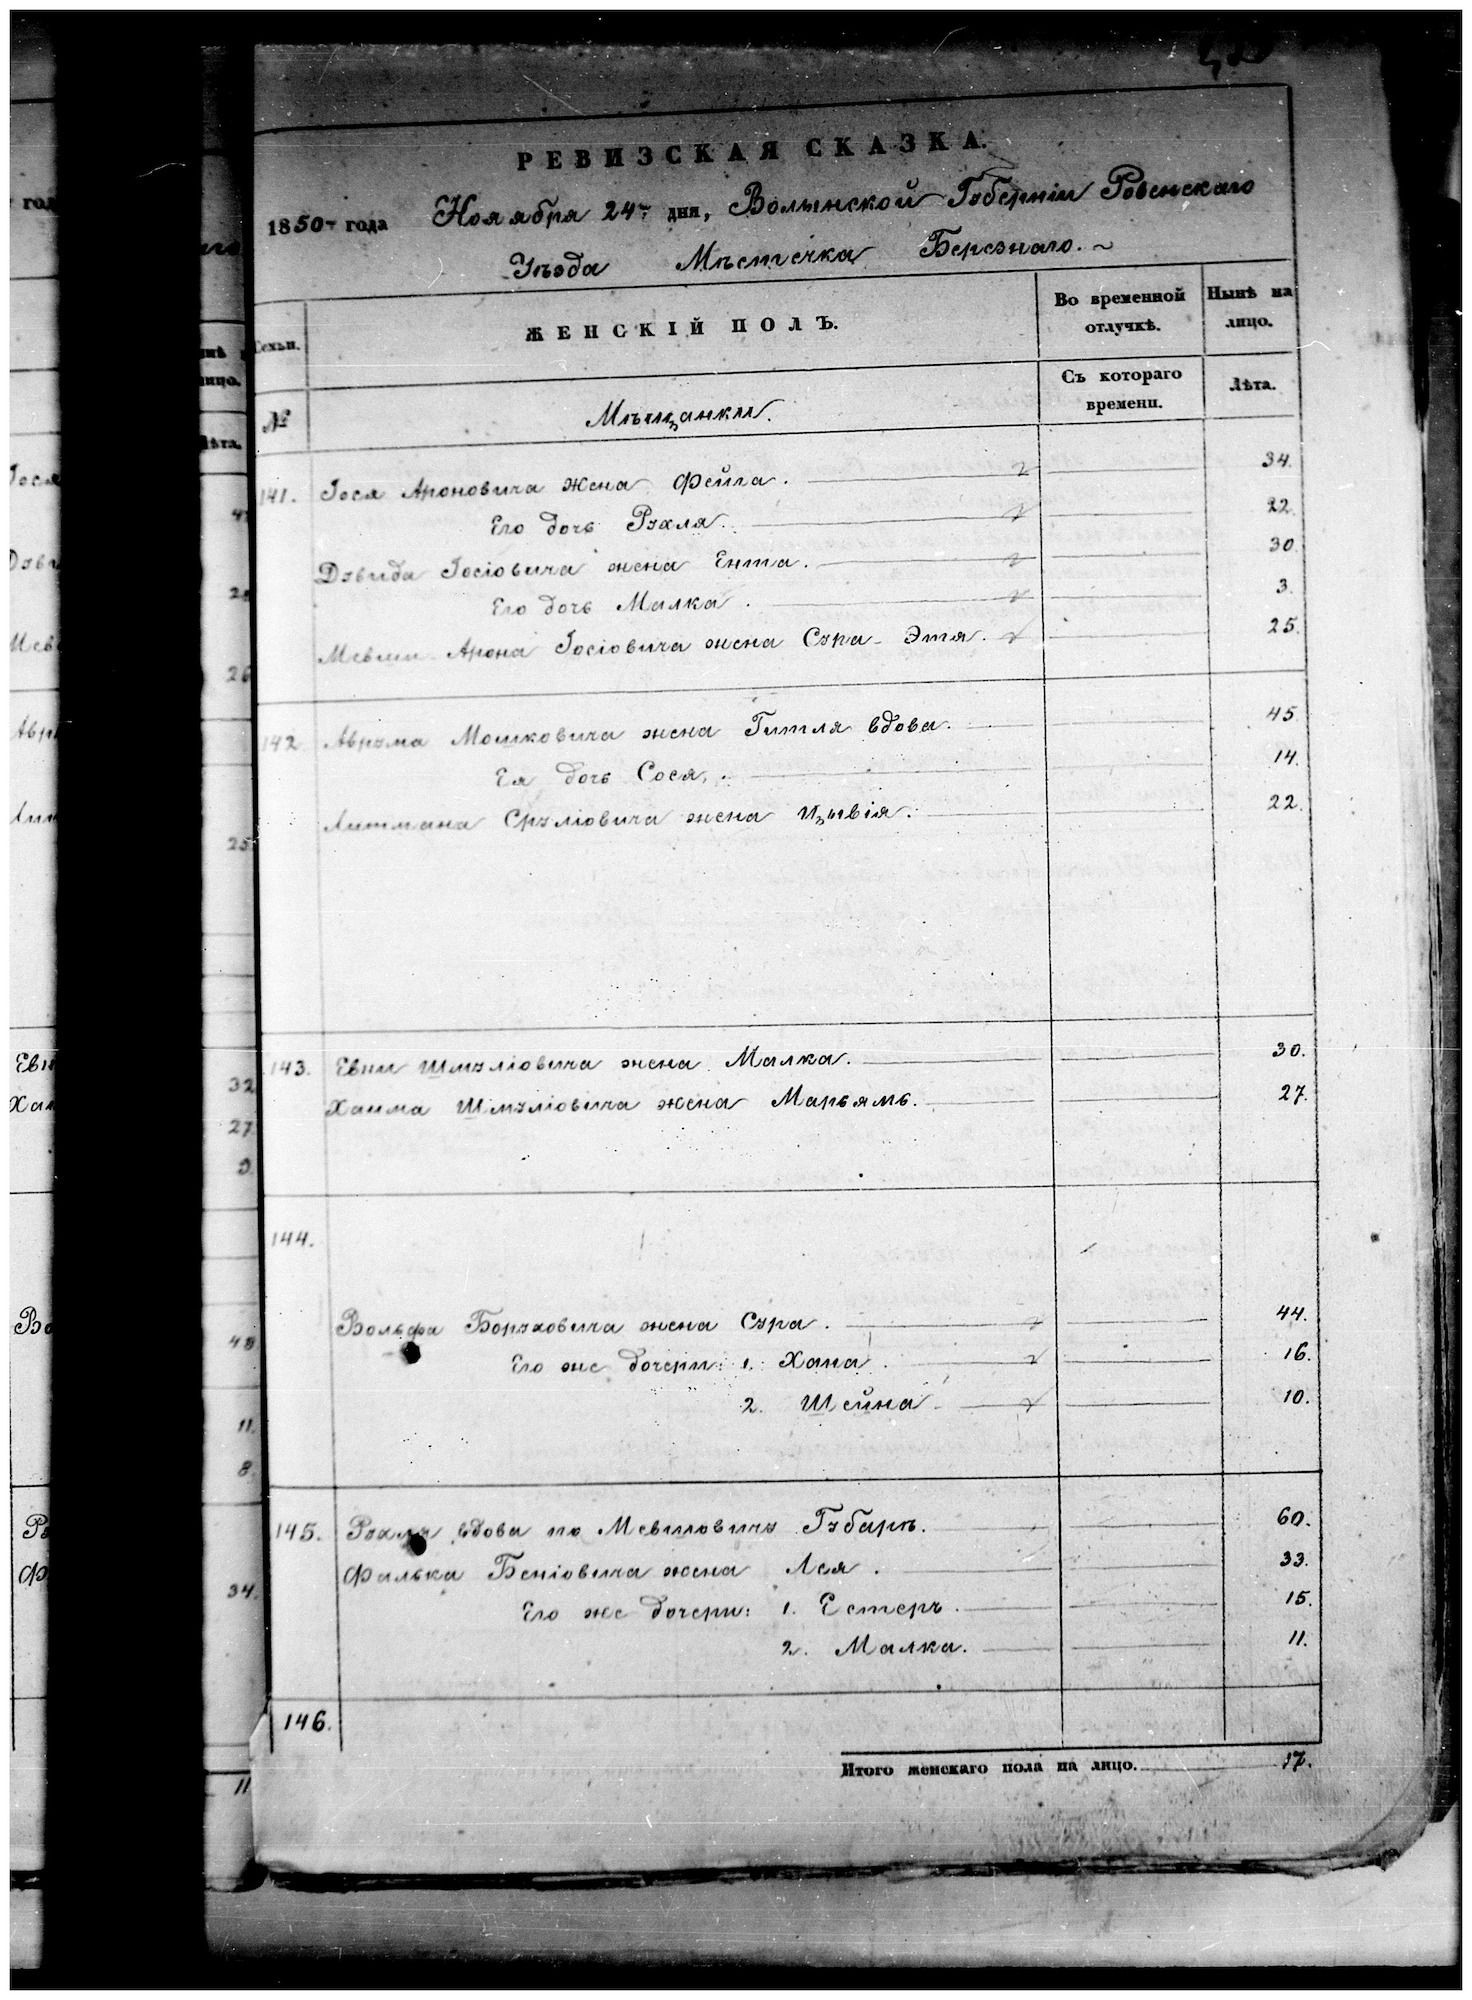 РЕВИЗСКАЯ СКАЗКА.
1850го года Ноября 24го дня, Волынской Губерніи Ровенскаго
Уѣзда Мѣстечка Березнаго.
Семьи.
ЖЕНСКІЙ ПОЛЪ.
Во временной отлучкѣ.
Нынѣ на лицо.
№
Мѣщанки.
Съ котораго времени.
Лѣта.
141. Іося Ароновича жена Фейга. 34.
Его дочь Рухля. 22.
Дувида Іосіовича жена Ента. 30.
Его дочь Малка. 3.
Мевши Арона Іосіовича жена Сура-Этя. 25.
142. Аврума Мошковича жена Гитля вдова. 45.
Ея дочь Сося. 14.
Литмана Сруліовича жена Цывія. 22.
143. Евны Шмуліовича жена Малка. 30.
Хаима Шмуліовича жена Марьямъ. 27.
144.
Вольфа Боруховича жена Сура. 44.
Его же дочери: 1. Хана. 16.
2. Шейна. 10.
145. Рухля вдова по Мевшовичу Губарѣ. 60.
Фалька Беніовича жена Лея. 33.
Его же дочери: 1. Естеръ. 15.
2. Малка. 11.
146.
Итого женскаго пола на лицо. 17.